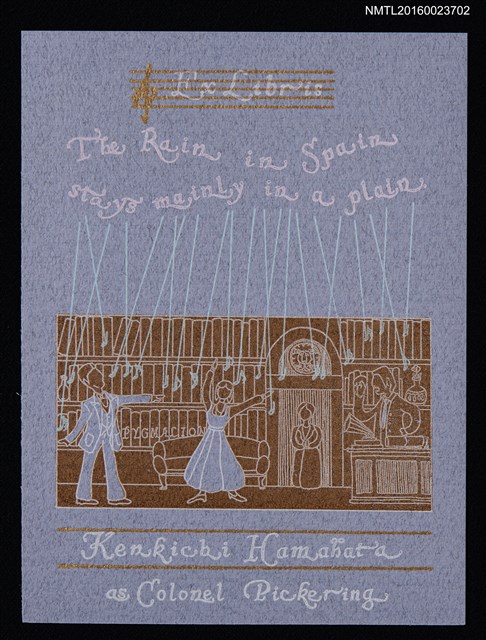 NMTL20160023702
Ex Libris
The Rain in Spain
stays mainly in a plain.
PYGMALION
Kenkichi Hamahata
as Colonel Pickering